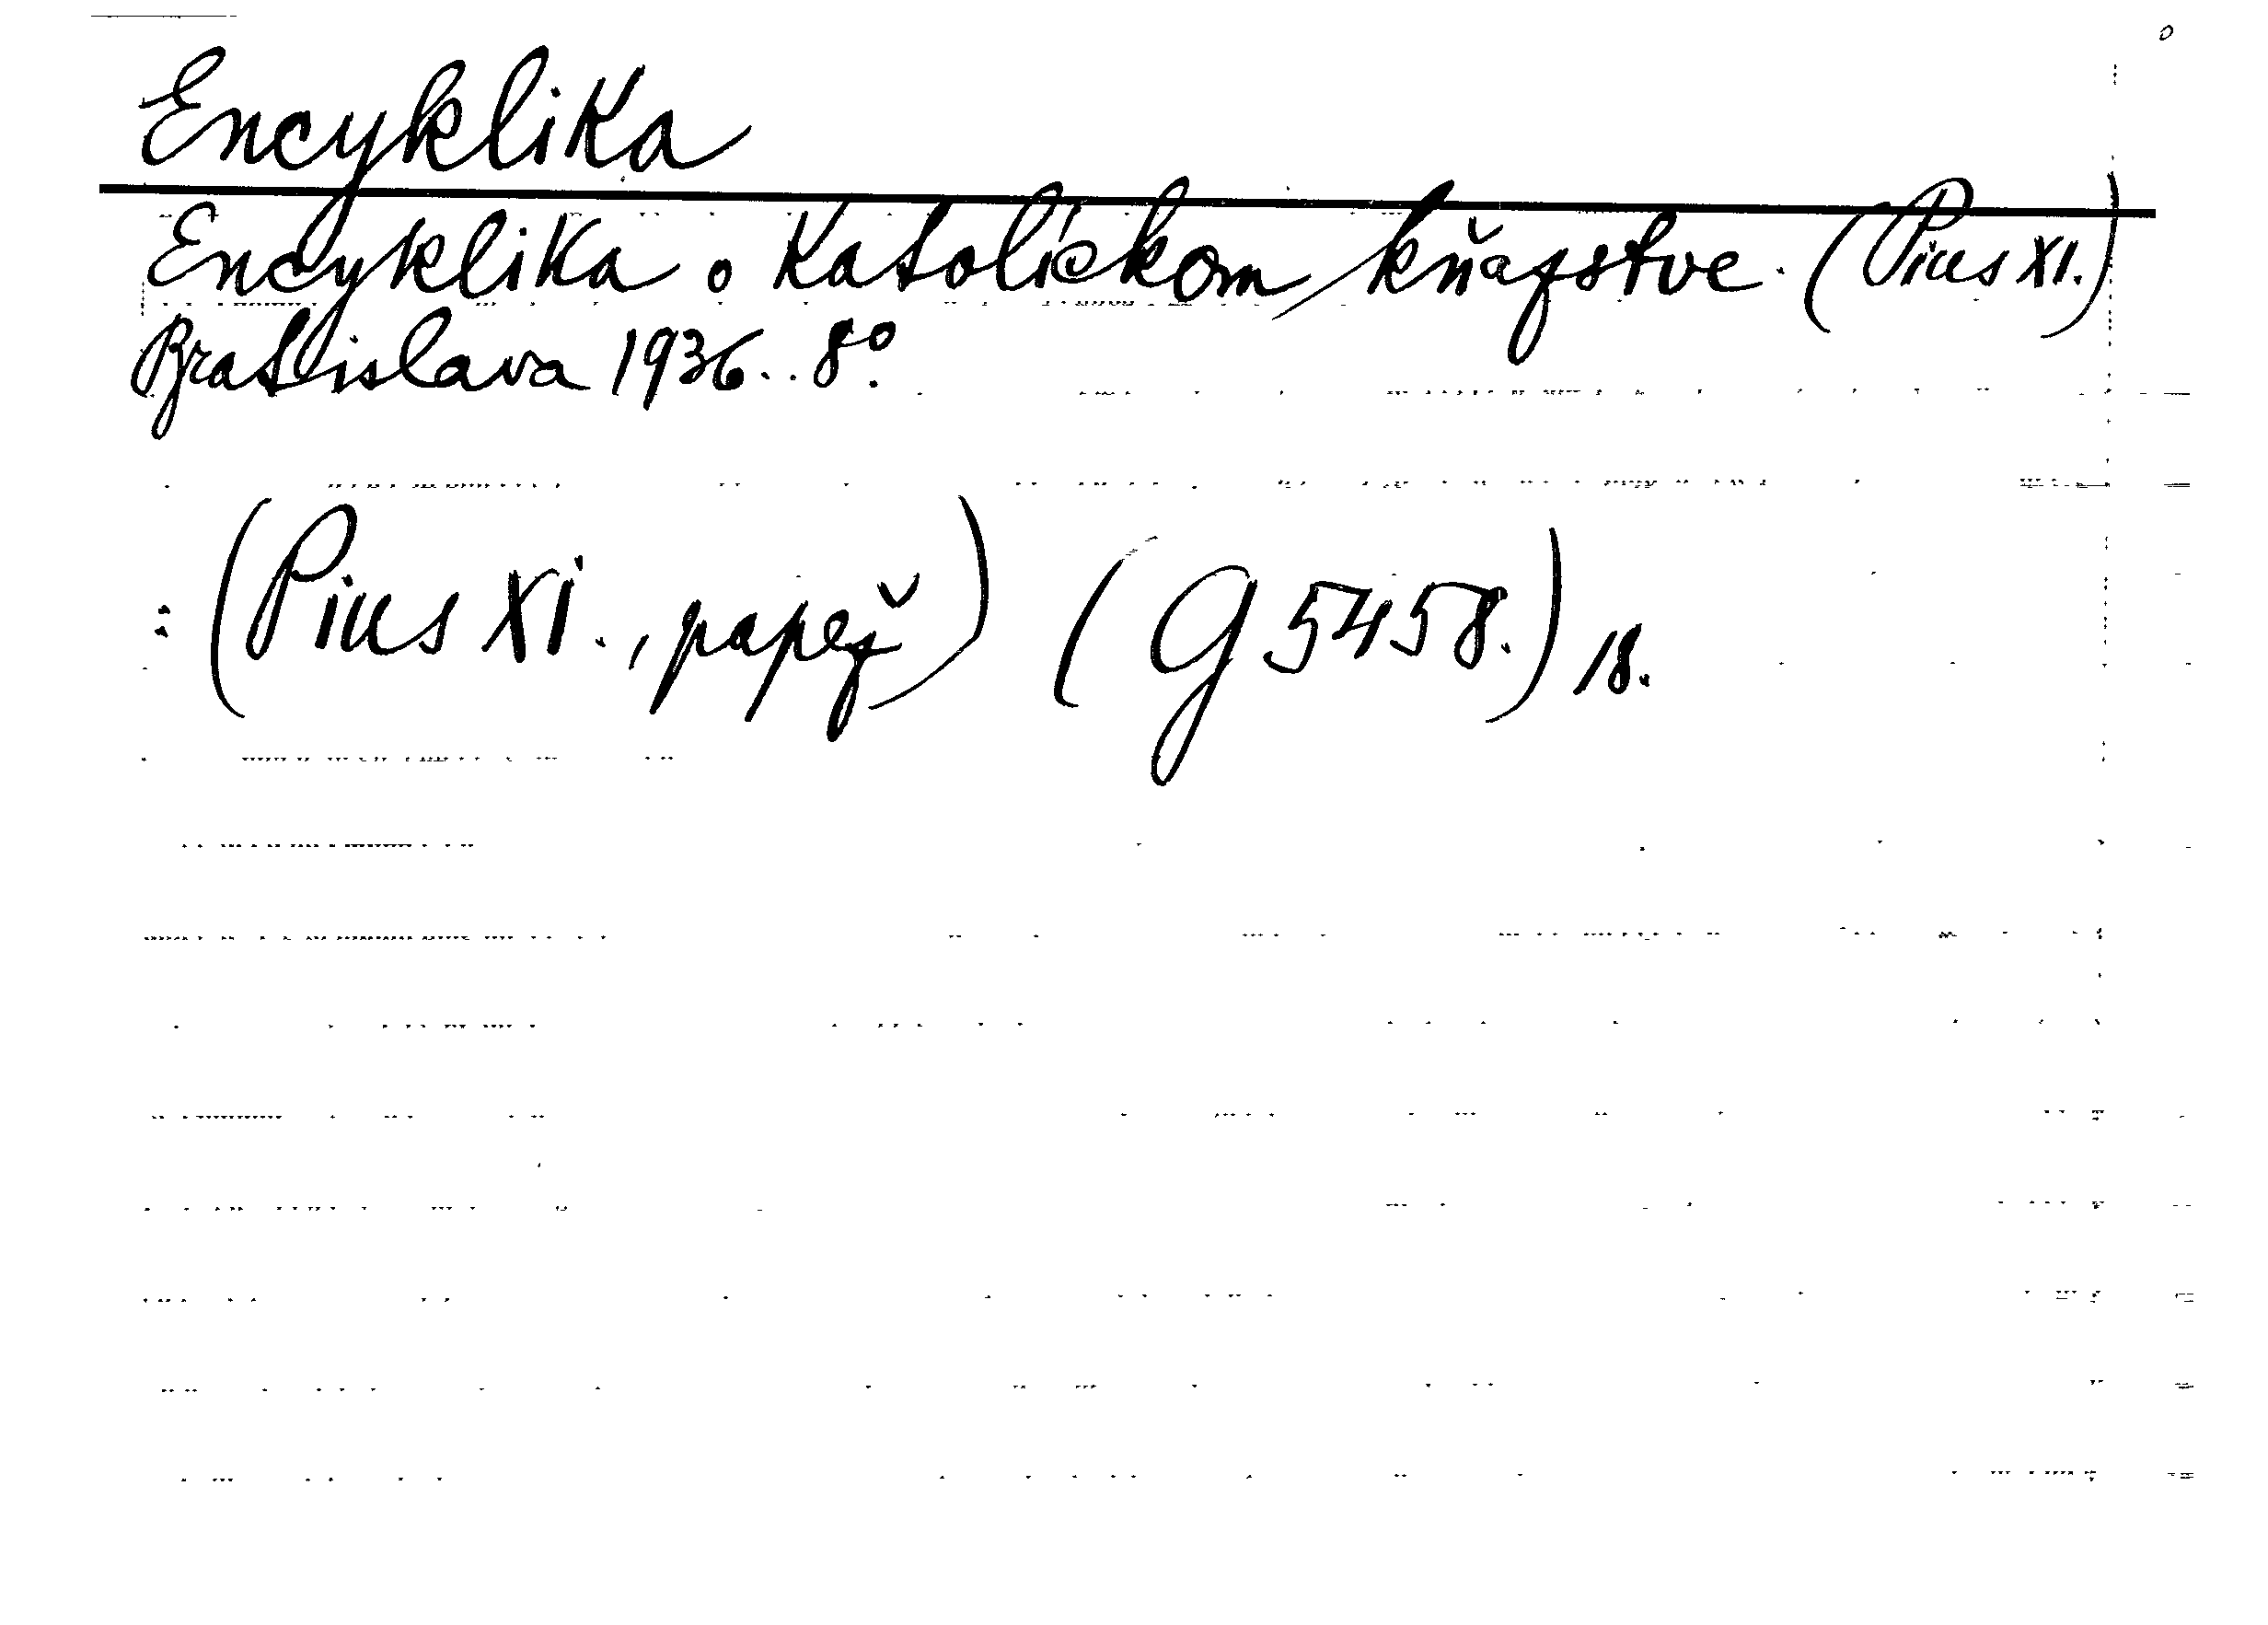 Encyklika
Encyklika o katolíckom kňazstve. (Pius XI.)
Bratislava 1936.. 8°.
: (Pius XI., papež) (G 5458.) 18.